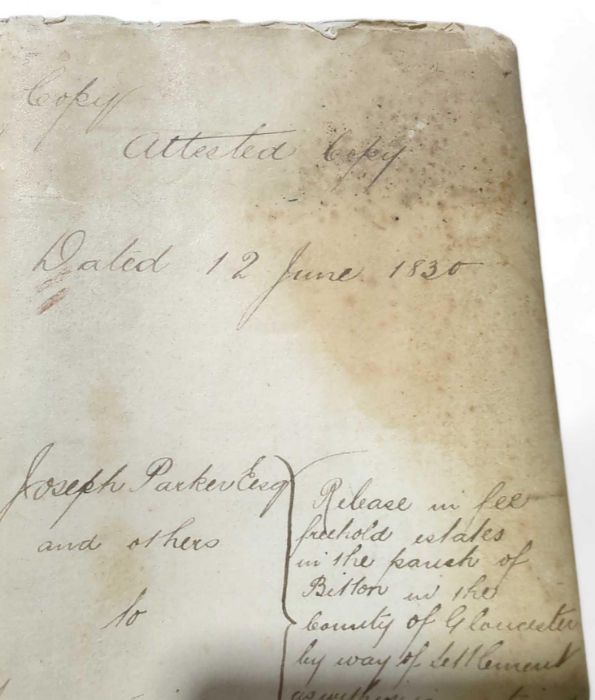 Copy
Attested Copy
Dated 12 June 1830
Joseph Parker Esq
and others
to
Release in fee
freehold estates
in the parish of
Bitton in the
County of Gloucester
by way of Settlement
as within